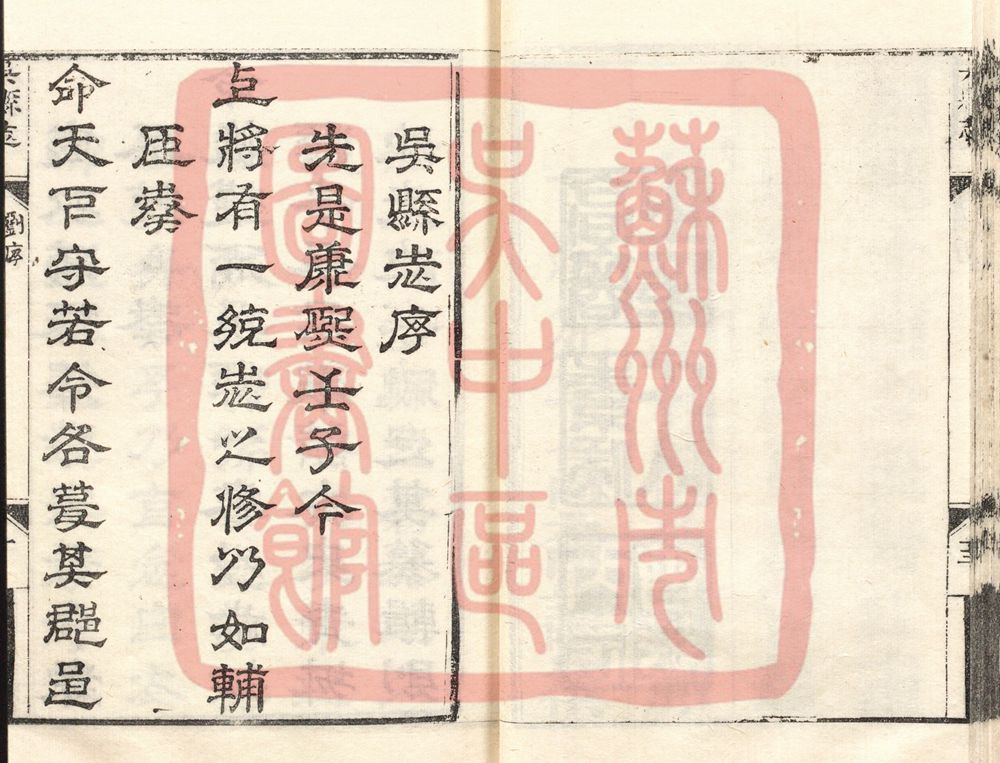 吳縣志序
先是康熙壬子今
上將有一統志之修乃如輔
臣奏
命天下守若令各蒐其郡邑
吳縣志
劉序
一
蘇州市
吳中區
圖書館